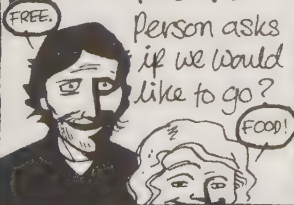 FREE.
Person asks
if we would
like to go?
FOOD!